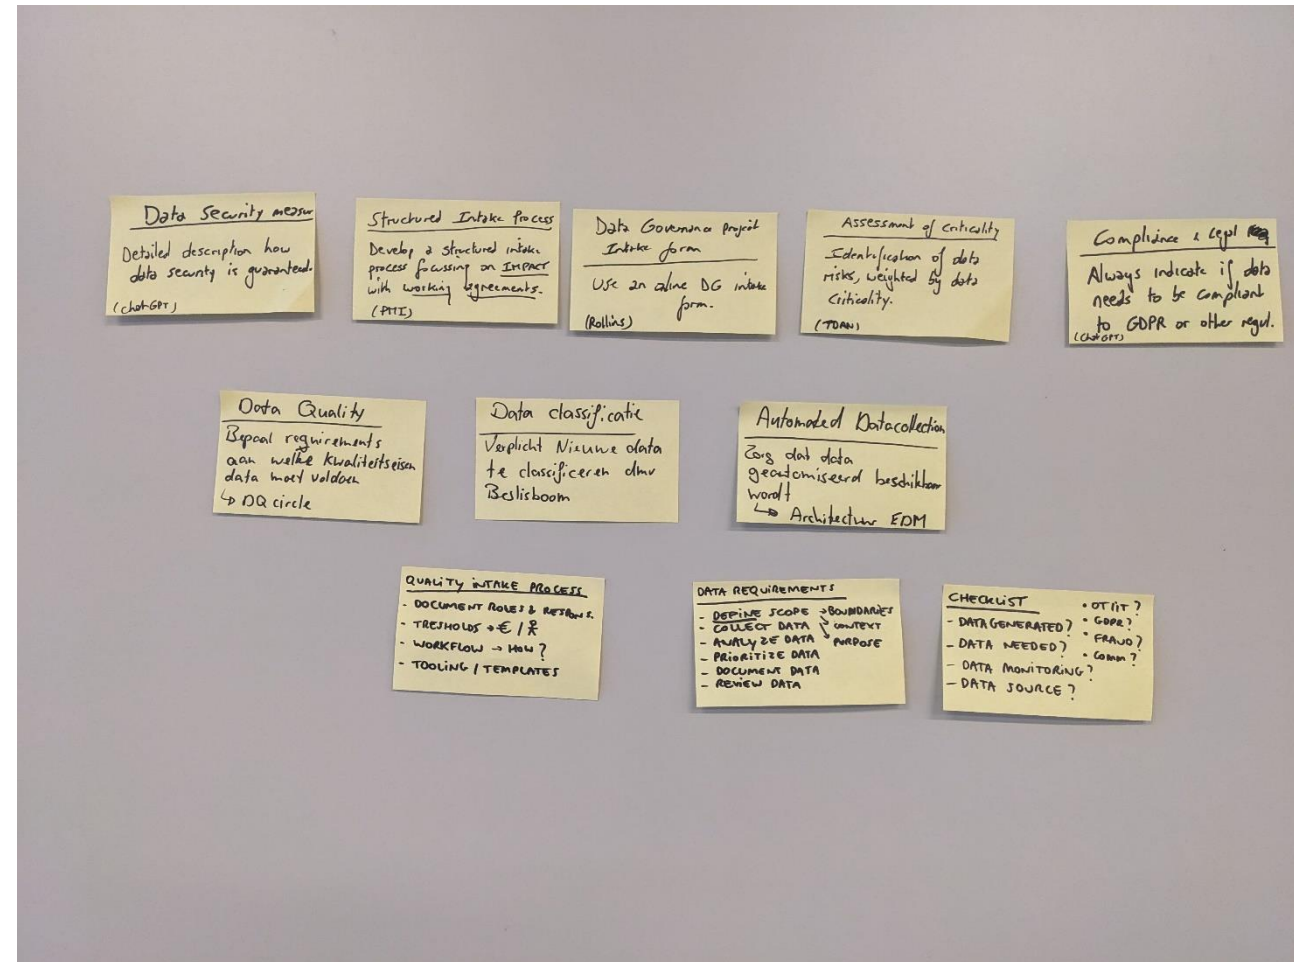 Data Security measur
Detailed description how
data security is guaranteed.
(chat-GPT)
Structured Intake Process
Develop a structured intake
process focussing on IMPACT
with working agreements.
(PMI)
Data Governance project
Intake form
Use an online DG intake
form.
(Rollins)
Assessment of criticality
Identification of data
risks, weighted by data
criticality.
(TDAN)
Compliance & legal
Always indicate if data
needs to be compliant
to GDPR or other regul.
(ChatGPT)
Data Quality
Bepaal requirements
aan welke Kwaliteitseisen
data moet voldoen
↳ DQ circle
Data classificatie
Verplicht Nieuwe data
te classificeren dmv
Beslisboom
Automated Datacollection
Zorg dat data
geautomiseerd beschikbaar
wordt
↳ Architectuur EDM
QUALITY INTAKE PROCESS
- DOCUMENT ROLES & RESPONS.
- TRESHOLDS → € /
- WORKFLOW → HOW?
- TOOLING / TEMPLATES
DATA REQUIREMENTS
- DEFINE SCOPE → BOUNDARIES
- COLLECT DATA ↘ CONTEXT
- ANALYZE DATA ↘ PURPOSE
- PRIORITIZE DATA
- DOCUMENT DATA
- REVIEW DATA
CHECKLIST
- DATA GENERATED?
- DATA NEEDED?
- DATA MONITORING?
- DATA SOURCE?
• OT/IT?
• GDPR?
• FRAUD?
• Comm?